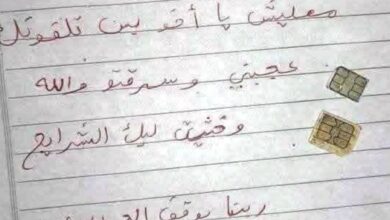 معليش يا أخو بس تلفونك
عجبني وسرقتو والله
وختيت ليك الشرايح
ربنا يوفق